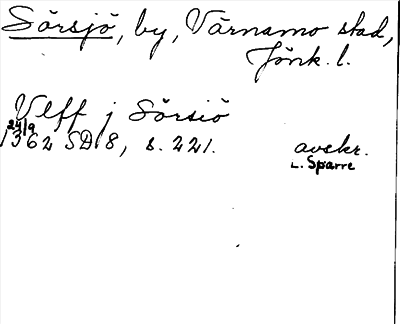 Sörsjö, by, Värnamo stad,
Jönk. l.
Vlff j Sörsiö
24/9
1362 SD 8, s. 221. avskr.
L. Sparre